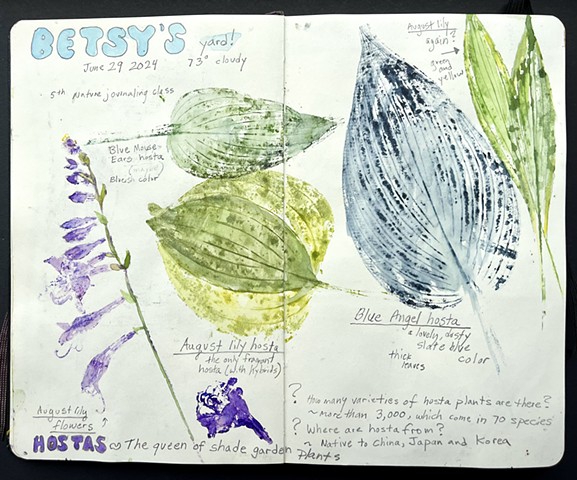 BETSY'S yard!
June 29 2024 73° cloudy
5th nature journaling class
August lily
again?
green
and
yellow
Blue Mouse
Ears hosta
Bluesh color
Blue Angel hosta
a lovely, dusty
slate blue
color
thick
leaves
August lily hosta
the only fragrant
hosta (with hybrids)
August lily
flowers
? How many varieties of hosta plants are there?
~ more than 3,000, which come in 70 species
? Where are hosta from?
~ Native to China, Japan and Korea
HOSTAS The queen of shade garden plants